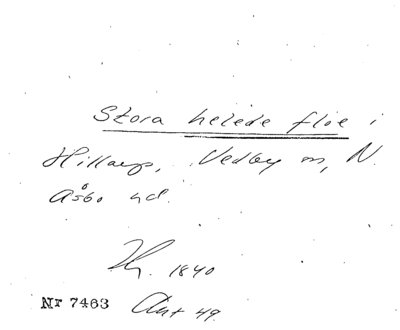 Stora helede flöe i
Hillarp, Vedby sn, N.
Åsbo hd.
1840
Nr 7463 Ant 49